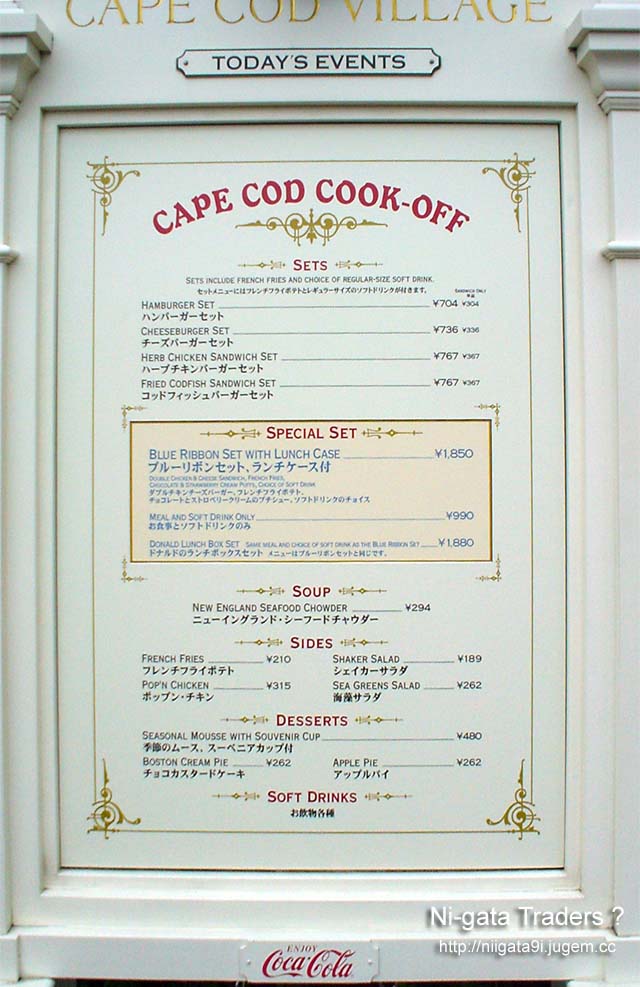 CAPE COD VILLAGE
TODAY'S EVENTS
CAPE COD COOK-OFF
SETS
SETS INCLUDE FRENCH FRIES AND CHOICE OF REGULAR-SIZE SOFT DRINK.
セットメニューにはフレンチフライポテトとレギュラーサイズのソフトドリンクが付きます。
SANDWICH ONLY
単品
HAMBURGER SET ¥704 ¥304
ハンバーガーセット
CHEESEBURGER SET ¥736 ¥336
チーズバーガーセット
HERB CHICKEN SANDWICH SET ¥767 ¥367
ハーブチキンバーガーセット
FRIED CODFISH SANDWICH SET ¥767 ¥367
コッドフィッシュバーガーセット
SPECIAL SET
BLUE RIBBON SET WITH LUNCH CASE ¥1,850
ブルーリボンセット、ランチケース付
DOUBLE CHICKEN & CHEESE SANDWICH, FRENCH FRIES,
CHOCOLATE & STRAWBERRY CREAM PUFFS, CHOICE OF SOFT DRINK
ダブルチキンチーズバーガー、フレンチフライポテト、
チョコレートとストロベリークリームのプチシュー、ソフトドリンクのチョイス
MEAL AND SOFT DRINK ONLY ¥990
お食事とソフトドリンクのみ
DONALD LUNCH BOX SET SAME MEAL AND CHOICE OF SOFT DRINK AS THE BLUE RIBBON SET ¥1,880
ドナルドのランチボックスセット メニューはブルーリボンセットと同じです。
SOUP
NEW ENGLAND SEAFOOD CHOWDER ¥294
ニューイングランド・シーフードチャウダー
SIDES
FRENCH FRIES ¥210 SHAKER SALAD ¥189
フレンチフライポテト シェイカーサラダ
POP'N CHICKEN ¥315 SEA GREENS SALAD ¥262
ポップン・チキン 海藻サラダ
DESSERTS
SEASONAL MOUSSE WITH SOUVENIR CUP ¥480
季節のムース、スーベニアカップ付
BOSTON CREAM PIE ¥262 APPLE PIE ¥262
チョコカスタードケーキ アップルパイ
SOFT DRINKS
お飲物各種
Ni-gata Traders ?
http://niigata9i.jugem.cc
ENJOY
Coca-Cola